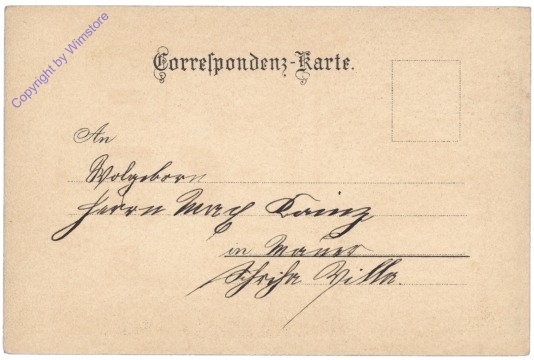 Copyright by Wimstore
Correspondenz-Karte.
An
Wolgeborn
Herrn Max Kainz
in Mauer
Villa.